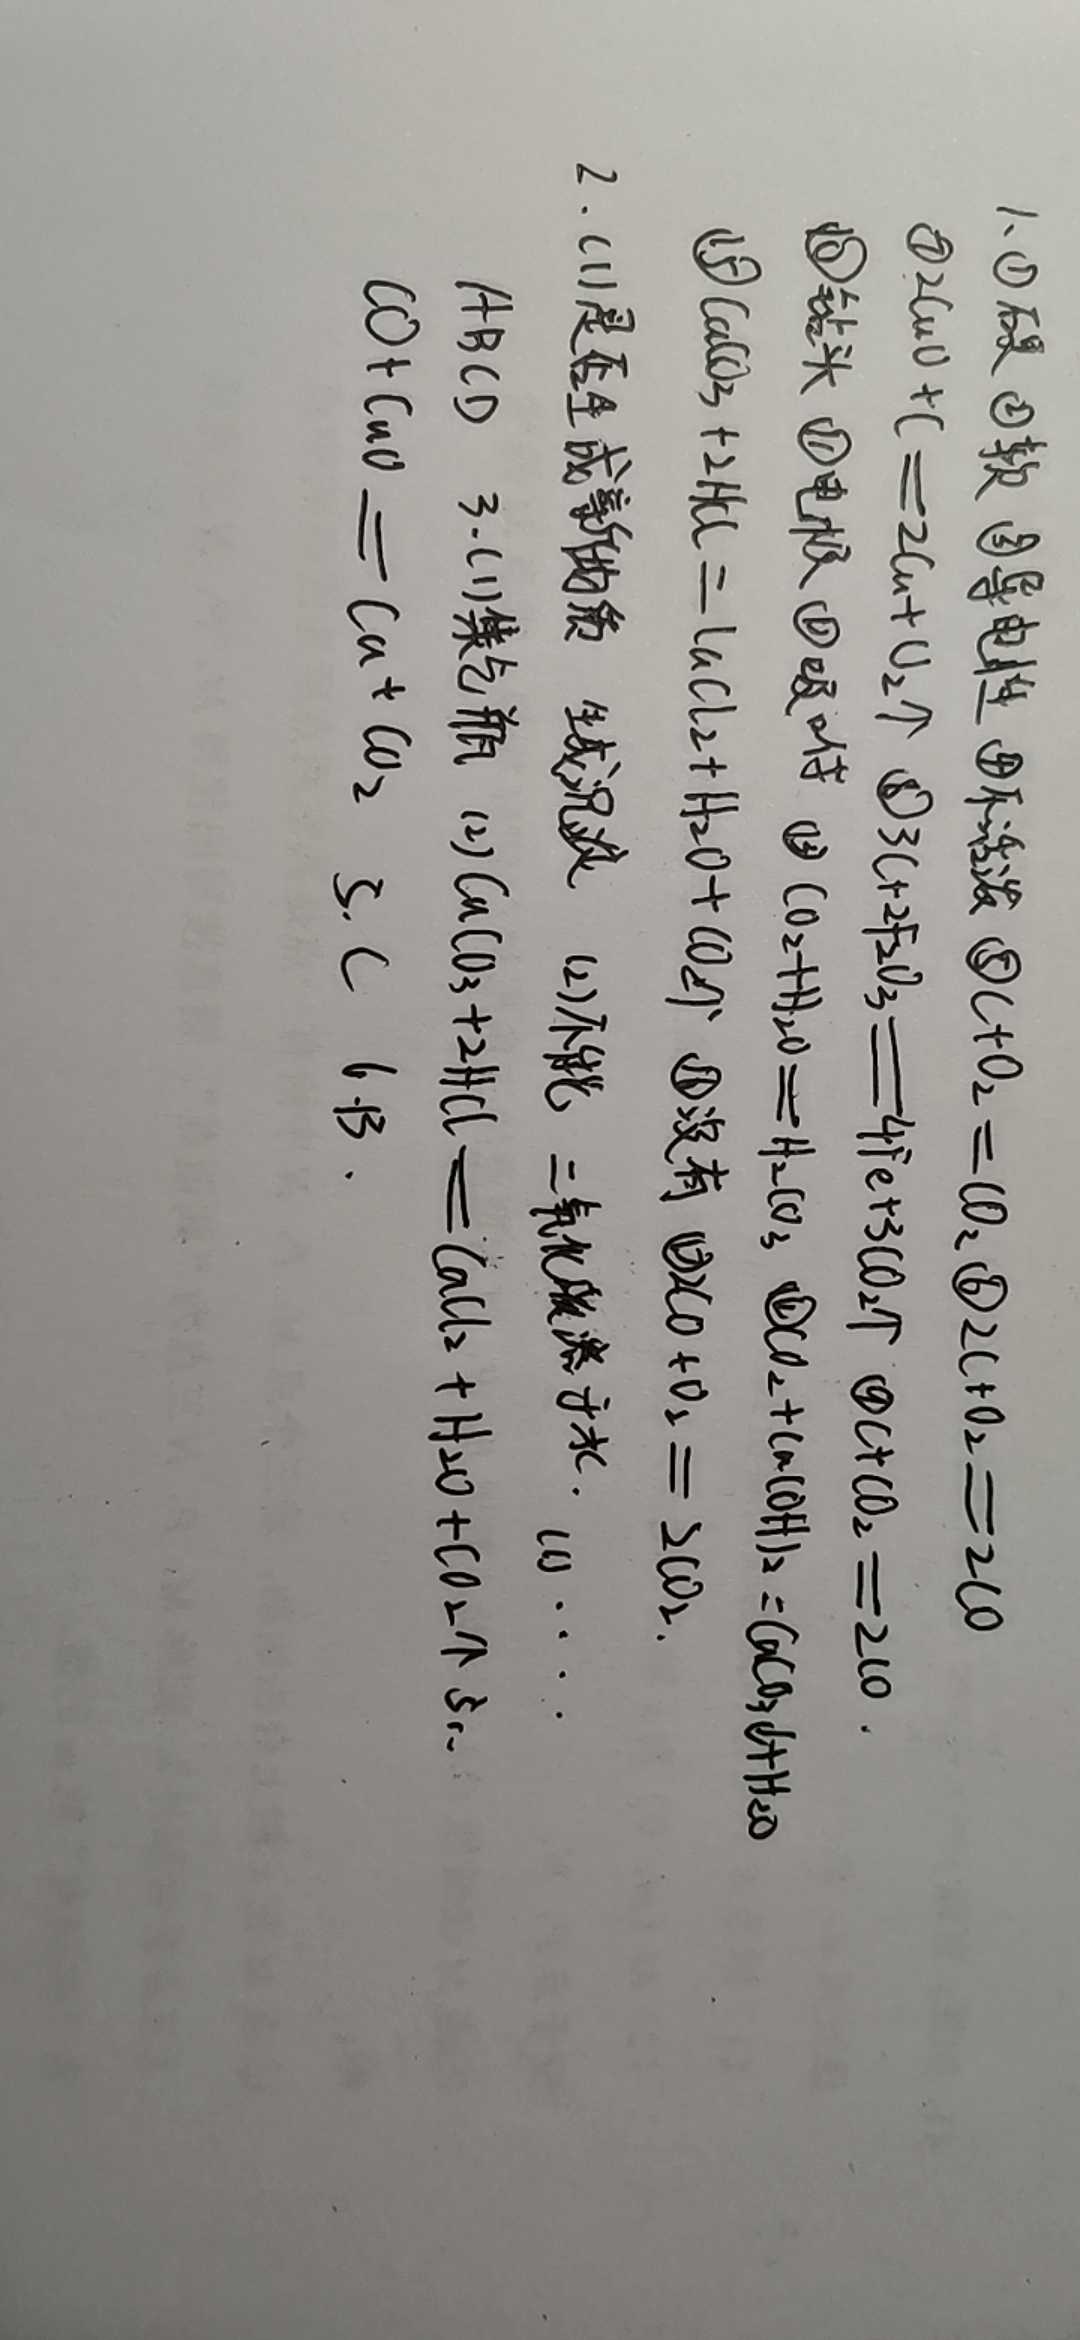 1、①硬 ②软 ③导电性 ④不活泼 ⑤C+O₂=CO₂ ⑥2C+O₂=2CO
⑦2CuO+C=2Cu+O₂↑ ⑧3C+2F₂O₃=4Fe+3CO₂↑ ⑨C+CO₂=2CO.
⑩钻头 ⑪电极 ⑫吸附 ⑬CO₂+H₂O=H₂CO₃ ⑭CO₂+Ca(OH)₂=CaCO₃↓+H₂O
⑮CaCO₃+2HCl=CaCl₂+H₂O+CO₂↑ ⑯没有 ⑰2CO+O₂=2CO₂.
2.(1)是否生成新物质 生成沉淀 (2)不能 二氧化碳溶于水.
ABCD 3.(1)集气瓶 (2)CaCO₃+2HCl=CaCl₂+H₂O+CO₂↑
CO+CuO=Cu+CO₂ 5.C 6.B.